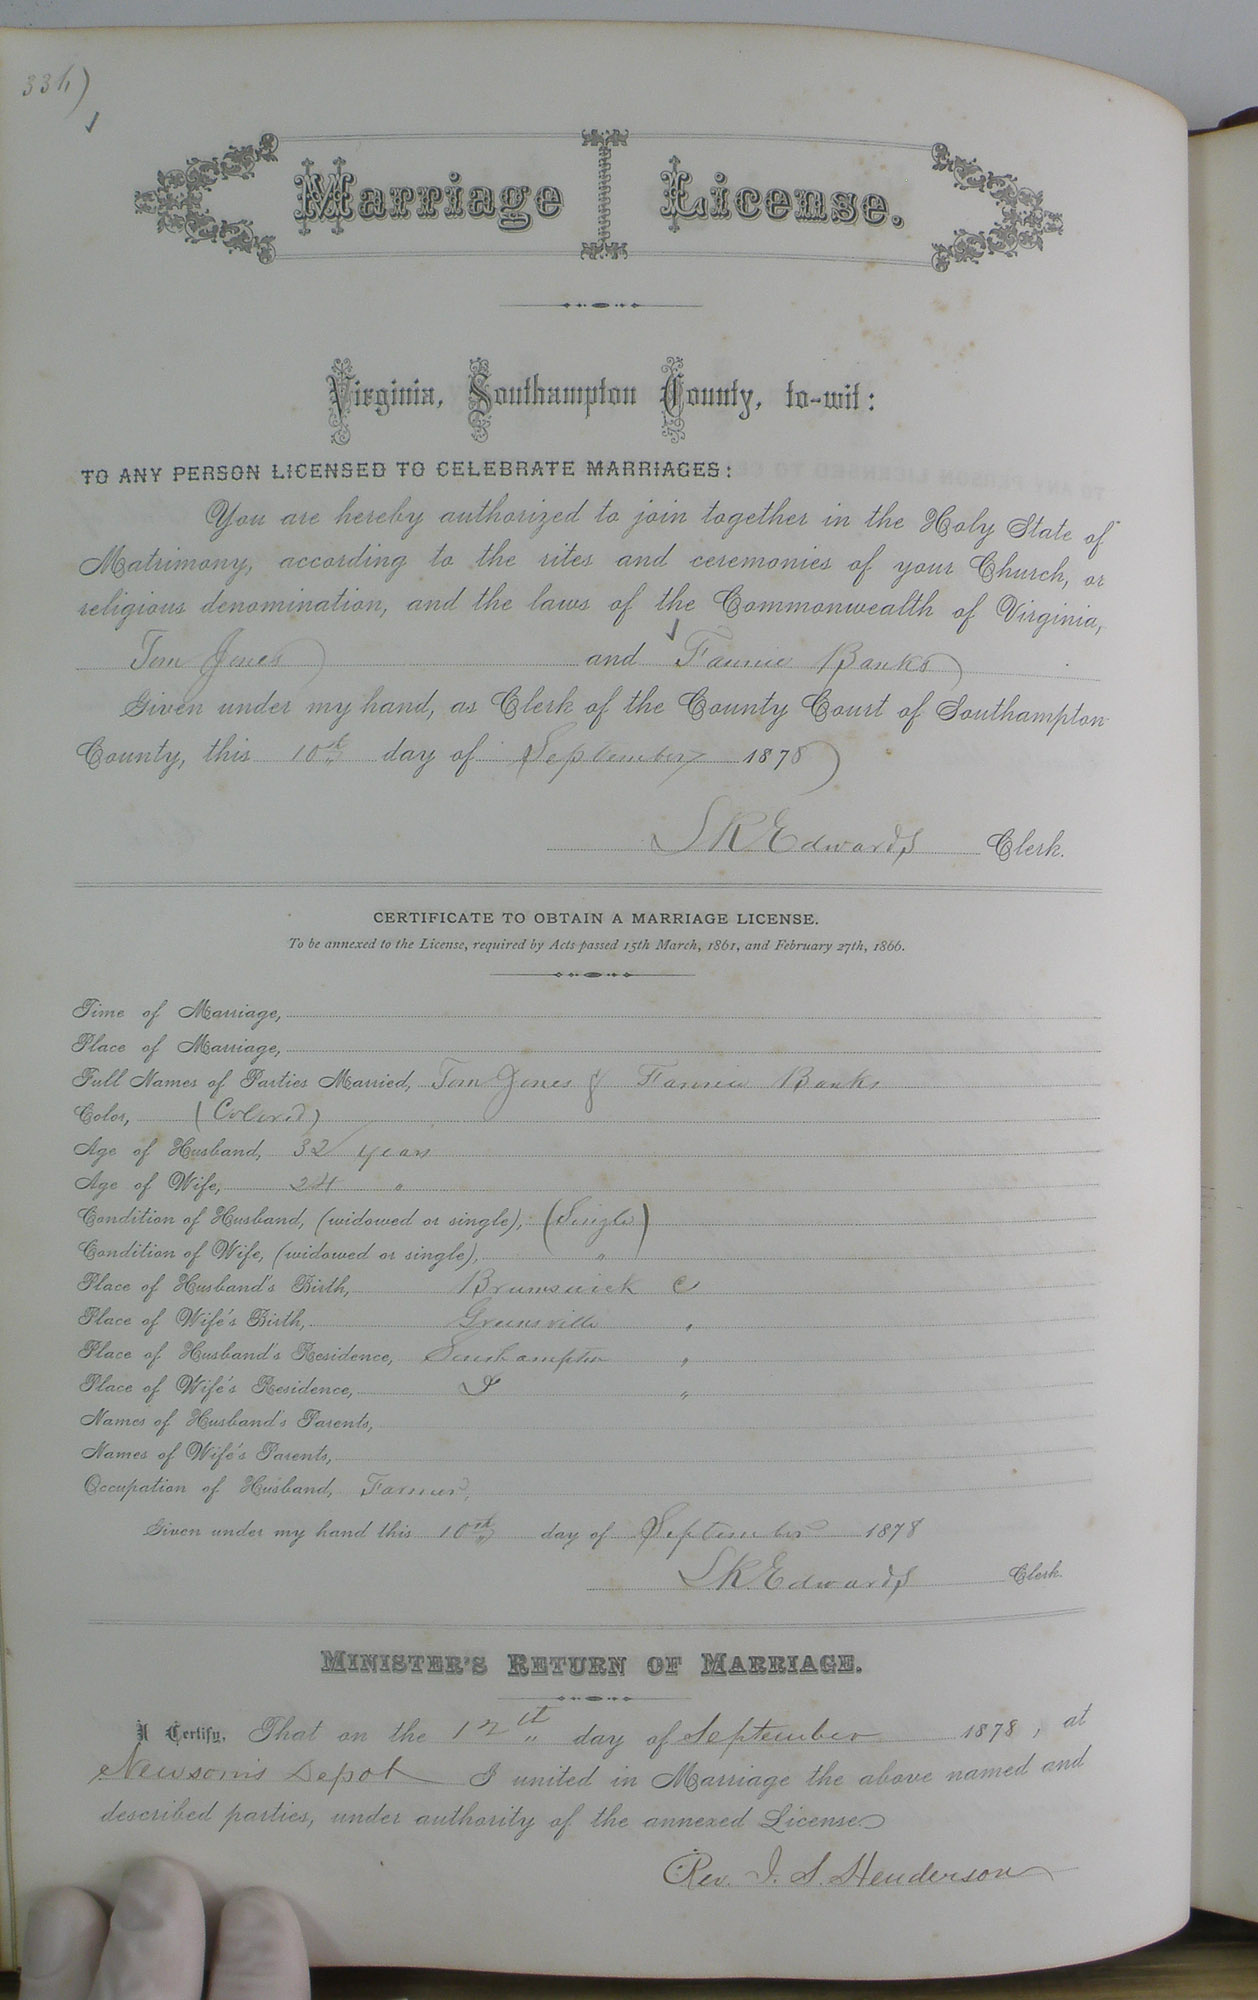 336)
Marriage License.
Virginia, Southampton County, to-wit:
TO ANY PERSON LICENSED TO CELEBRATE MARRIAGES:
You are hereby authorized to join together in the Holy State of
Matrimony, according to the rites and ceremonies of your Church, or
religious denomination, and the laws of the Commonwealth of Virginia,
Tom Jones and Fannie Banks
Given under my hand, as Clerk of the County Court of Southampton
County, this 10th day of September 1878
L R Edwards Clerk.
CERTIFICATE TO OBTAIN A MARRIAGE LICENSE.
To be annexed to the License, required by Acts passed 15th March, 1861, and February 27th, 1866.
Time of Marriage,
Place of Marriage,
Full Names of Parties Married, Tom Jones & Fannie Banks
Color, (Colored)
Age of Husband, 32 years
Age of Wife, 24 "
Condition of Husband, (widowed or single), (Single)
Condition of Wife, (widowed or single), "
Place of Husband's Birth, Brunswick C
Place of Wife's Birth, Greensville "
Place of Husband's Residence, Southampton "
Place of Wife's Residence, "
Names of Husband's Parents,
Names of Wife's Parents,
Occupation of Husband, Farmer,
Given under my hand this 10th day of September 1878
L R Edwards Clerk.
MINISTER'S RETURN OF MARRIAGE.
I Certify, That on the 12th day of September 1878, at
Newsom's Depot I united in Marriage the above named and
described parties, under authority of the annexed License.
Rev. J. S. Henderson